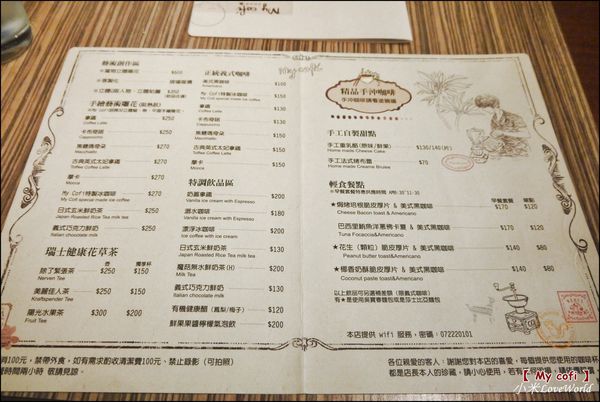 My cofi
藝術創作區
$600
現場報價
$200
手繪藝術雕花
拿鐵 $250
Coffee Latte
卡布奇諾 $250
Cappuccino
焦糖瑪奇朵 $270
Macchiato
古典英式太妃拿鐵 $270
Toffee Coffee Latte
摩卡 $270
Mocca
★ My Cofi特製冰咖啡 $270
日式玄米鮮奶茶 $250
Japan Roasted Rice Tea milk tea
義式巧克力鮮奶 $250
Italian chocolate milk
瑞士健康花草茶
壺 獨享杯
除了緊張茶 $250 $150
Nerven Tee
美麗佳人茶 $250 $150
Kraftspender Tee
陽光水果茶 $300 $200
Fruit Tee
正統義式咖啡
美式黑咖啡 $100
Americano
My Cofi特製冰咖啡 $160
My Cofi special made ice coffee
拿鐵 $150
Coffee Latte
卡布奇諾 $150
Cappuccino
焦糖瑪奇朵 $160
Macchiato
古典英式太妃拿鐵 $160
Toffee Coffee Latte
摩卡 $160
Mocca
特調飲品區
奶蓋拿鐵 $190
Vanilla ice cream with Espresso
遇冰咖啡 $180
Vanilla ice cream with Espresso
漂浮冰咖啡 $180
Ice coffee with ice cream
日式玄米鮮奶茶 $130
Japan Roasted Rice Tea milk tea
魔菇無水鮮奶茶(H) $200
Milk Tea
義式巧克力鮮奶 $130
Italian chocolate milk
有機健康醋 (鳳梨/梅子) $120
鮮果果鹽檸檬氣泡飲 $200
My cofi
精品手沖咖啡
手沖咖啡請看這邊
手工自製甜點
手工重乳酪 (原味/鮮果) $130/140(片)
Home made Cheese Cake
手工法式烤布蕾 $70
Home made Creame Brulee
輕食餐點
早餐套餐 單點
★ 焗烤培根脆皮厚片 & 美式黑咖啡 $170 $120
Cheese Bacon toast & Americano
巴西里鮪魚洋蔥佛卡夏 & 美式黑咖啡 $170 $120
Tuna Focaccia & Americano
★ 花生 (顆粒) 脆皮厚片 & 美式黑咖啡 $140 $80
Peanut butter toast & Americano
★ 椰香奶酥脆皮厚片 & 美式黑咖啡 $140 $80
Coconut paste toast & Americano
本店提供 wifi 服務，密碼：072220101
100元，禁帶外食，如有需求酌收清潔費100元，禁止錄影 (可拍照)
時間兩小時 敬請見諒。
各位親愛的客人：謝謝您對本店的喜愛，每個提供您使用的咖啡杯
都是店長本人的珍藏，請小心使用，
【 My cofi 】
小米LoveWorld